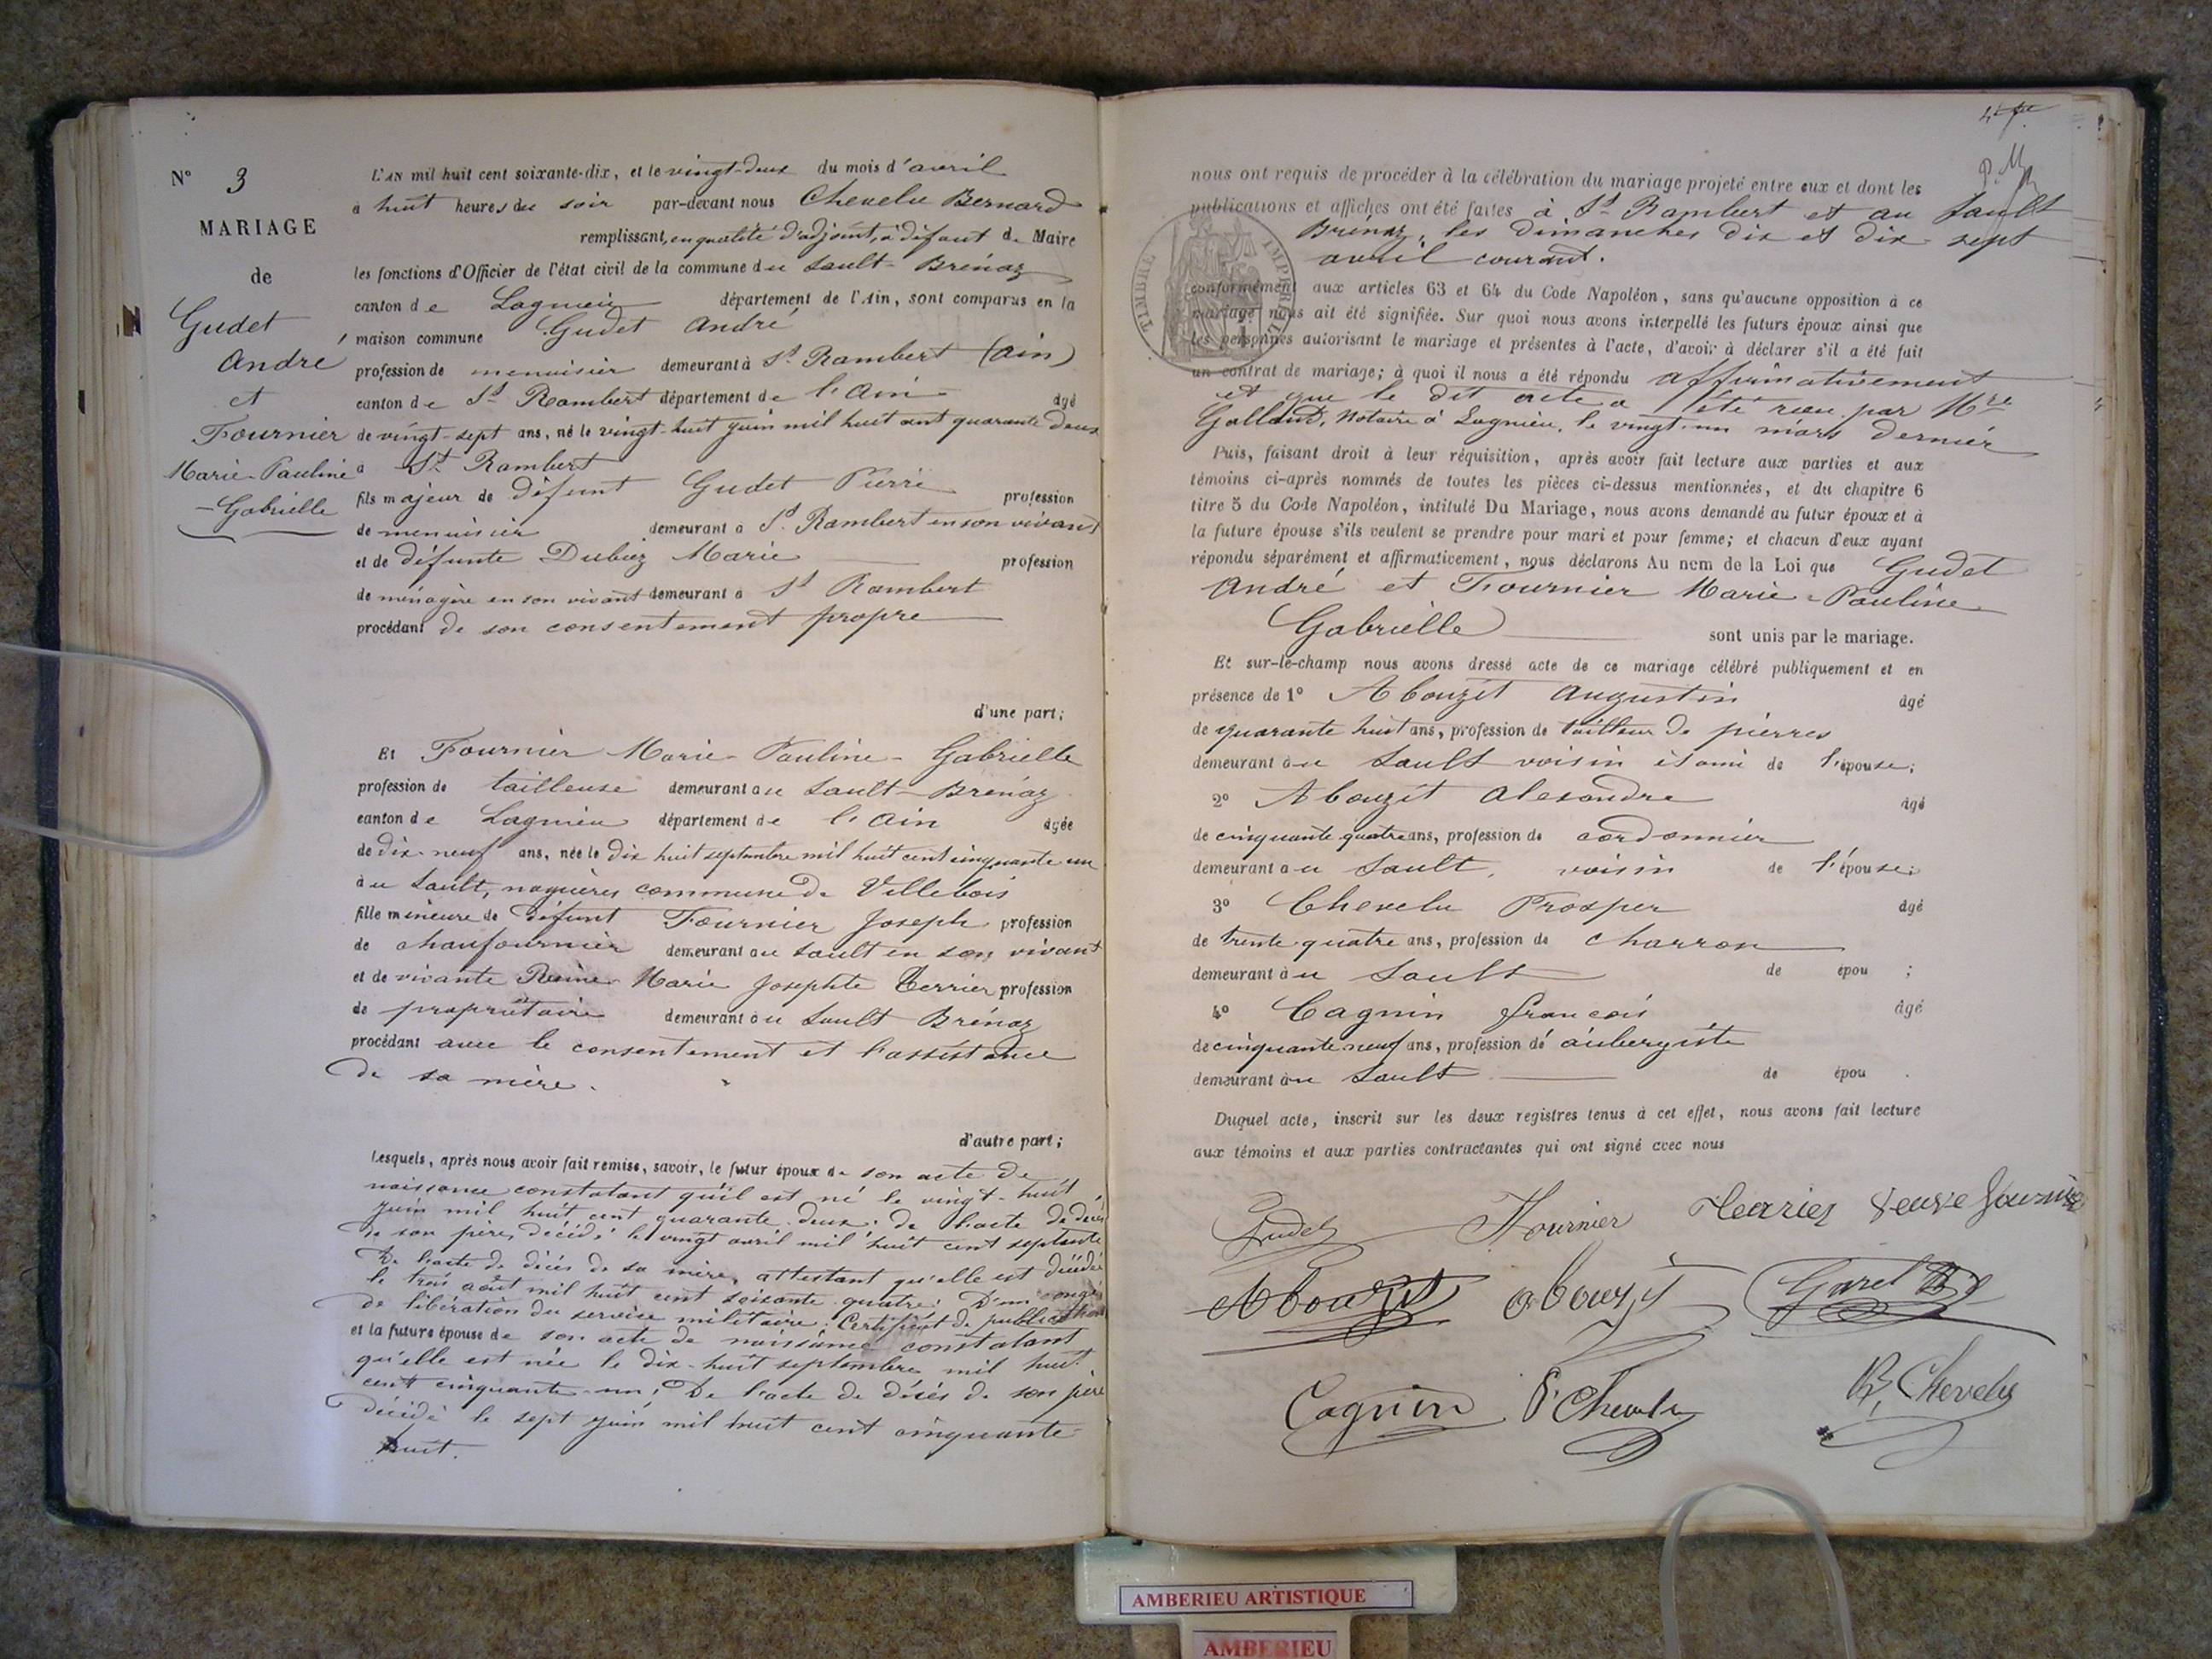 N° 3
MARIAGE
de
Gudet
André
et
Fournier
Marie-Pauline
-Gabrielle
L'AN mil huit cent soixante-dix, et le vingt-deux du mois d'avril
à huit heures du soir par-devant nous Chevelu Bernard
remplissant, en qualité d'adjoint, à défaut de Maire
les fonctions d'Officier de l'état civil de la commune du Sault-Brénaz
canton de Lagnieu département de l'Ain, sont comparus en la
maison commune Gudet André
profession de menuisier demeurant à St Rambert (Ain)
canton de St Rambert département de l'Ain âgé
de vingt-sept ans, né le vingt-huit juin mil huit cent quarante deux
à St Rambert
fils majeur de défunt Gudet Pierre profession
de menuisier demeurant à St Rambert en son vivant
et de défunte Marie profession
de ménagère en son vivant demeurant à St Rambert
procédant de son consentement propre
d'une part;
Et Fournier Marie-Pauline-Gabrielle
profession de tailleuse demeurant au Sault-Brénaz
canton de Lagnieu département de l'Ain âgée
de dix-neuf ans, née le dix huit septembre mil huit cent cinquante un
au Sault, naguères commune de Villebois
fille mineure de défunt Fournier Joseph profession
de chaufournier demeurant au Sault en son vivant
et de vivante Reine Marie Josephte Terrier profession
de propriétaire demeurant au Sault Brénaz
procédant avec le consentement et l'assistance
de sa mère.
d'autre part;
Lesquels, après nous avoir fait remise, savoir, le futur époux de son acte de
naissance constatant qu'il est né le vingt-huit
juin mil huit cent quarante-deux; de l'acte de décès
de son père, décédé le vingt avril mil huit cent septante
De l'acte de décès de sa mère, attestant qu'elle est décédée
le trois août mil huit cent soixante-quatre; D'un congé
de libération du service militaire; Certificat de publication
et la future épouse de son acte de naissance constatant
qu'elle est née le dix-huit septembre mil huit
cent cinquante-un; De l'acte de décès de son père
décédé le sept juin mil huit cent cinquante-
huit.
nous ont requis de procéder à la célébration du mariage projeté entre eux et dont les
publications et affiches ont été faites à St Rambert et au Sault
Brénaz, les dimanches dix et dix-sept
avril courant.
TIMBRE IMPERIAL
conformément aux articles 63 et 64 du Code Napoléon, sans qu'aucune opposition à ce
mariage nous ait été signifiée. Sur quoi nous avons interpellé les futurs époux ainsi que
les personnes autorisant le mariage et présentes à l'acte, d'avoir à déclarer s'il a été fait
un contrat de mariage; à quoi il nous a été répondu affirmativement
et que le dit acte a été reçu par Mre
Galland, Notaire à Lagnieu, le vingt-un mars dernier
Puis, faisant droit à leur réquisition, après avoir fait lecture aux parties et aux
témoins ci-après nommés de toutes les pièces ci-dessus mentionnées, et du chapitre 6
titre 5 du Code Napoléon, intitulé Du Mariage, nous avons demandé au futur époux et à
la future épouse s'ils veulent se prendre pour mari et pour femme; et chacun d'eux ayant
répondu séparément et affirmativement, nous déclarons Au nom de la Loi que Gudet
André et Fournier Marie-Pauline
Gabrielle sont unis par le mariage.
Et sur-le-champ nous avons dressé acte de ce mariage célébré publiquement et en
présence de 1° Abouzit Augustin âgé
de quarante huit ans, profession de tailleur de pierres
demeurant au Sault voisin et ami de l'épouse;
2° Abouzit Alexandre âgé
de cinquante quatre ans, profession de cordonnier
demeurant au Sault, voisin de l'épouse;
3° Chevelu Prosper âgé
de trente quatre ans, profession de charron
demeurant au Sault de épou ;
4° Cagnin françois âgé
de cinquante neuf ans, profession de aubergiste
demeurant au Sault de épou .
Duquel acte, inscrit sur les deux registres tenus à cet effet, nous avons fait lecture
aux témoins et aux parties contractantes qui ont signé avec nous
Gudet Fournier Terrier veuve fournier
Abouzit abouzit
Cagnin P. Chevelu B. Chevelu
AMBERIEU ARTISTIQUE
AMBERIEU